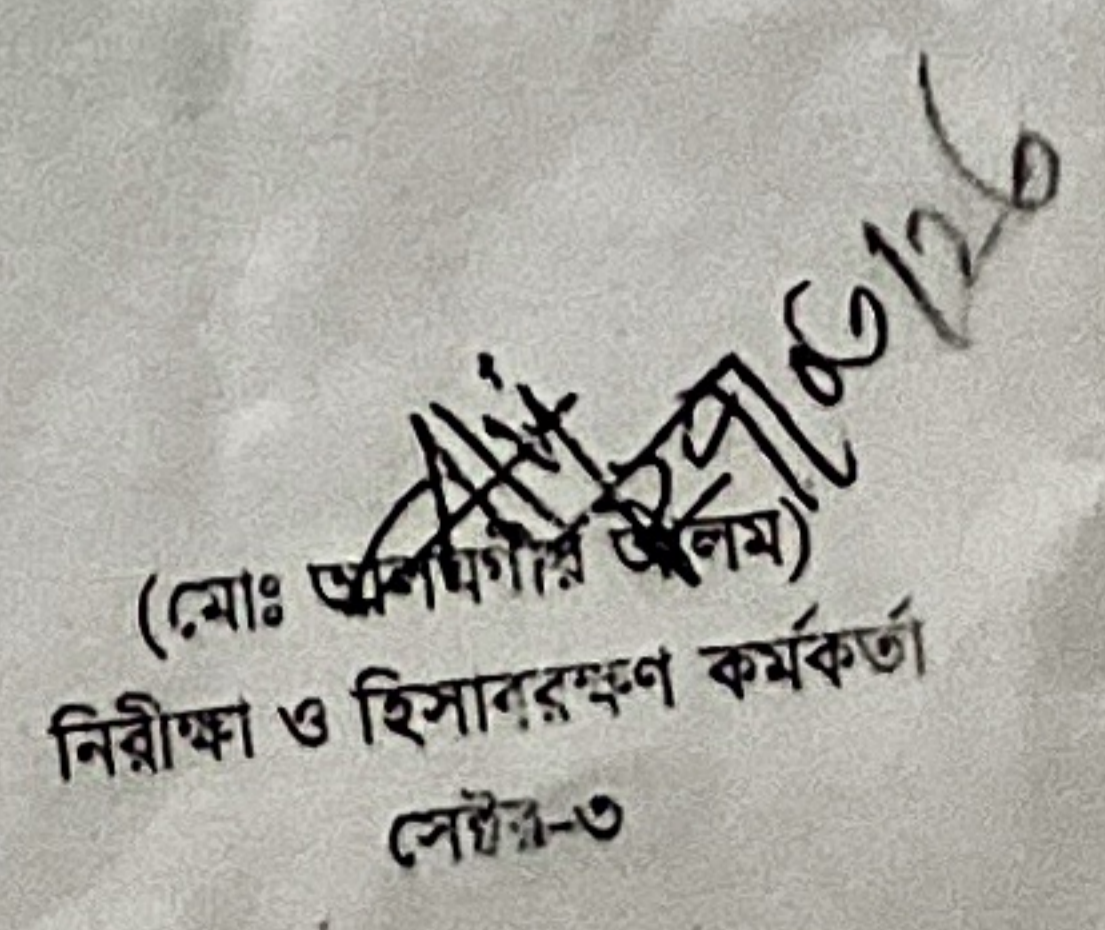 (মোঃ আলমগীর আলম)
নিরীক্ষা ও হিসাবরক্ষণ কর্মকর্তা
সেক্টর-৩